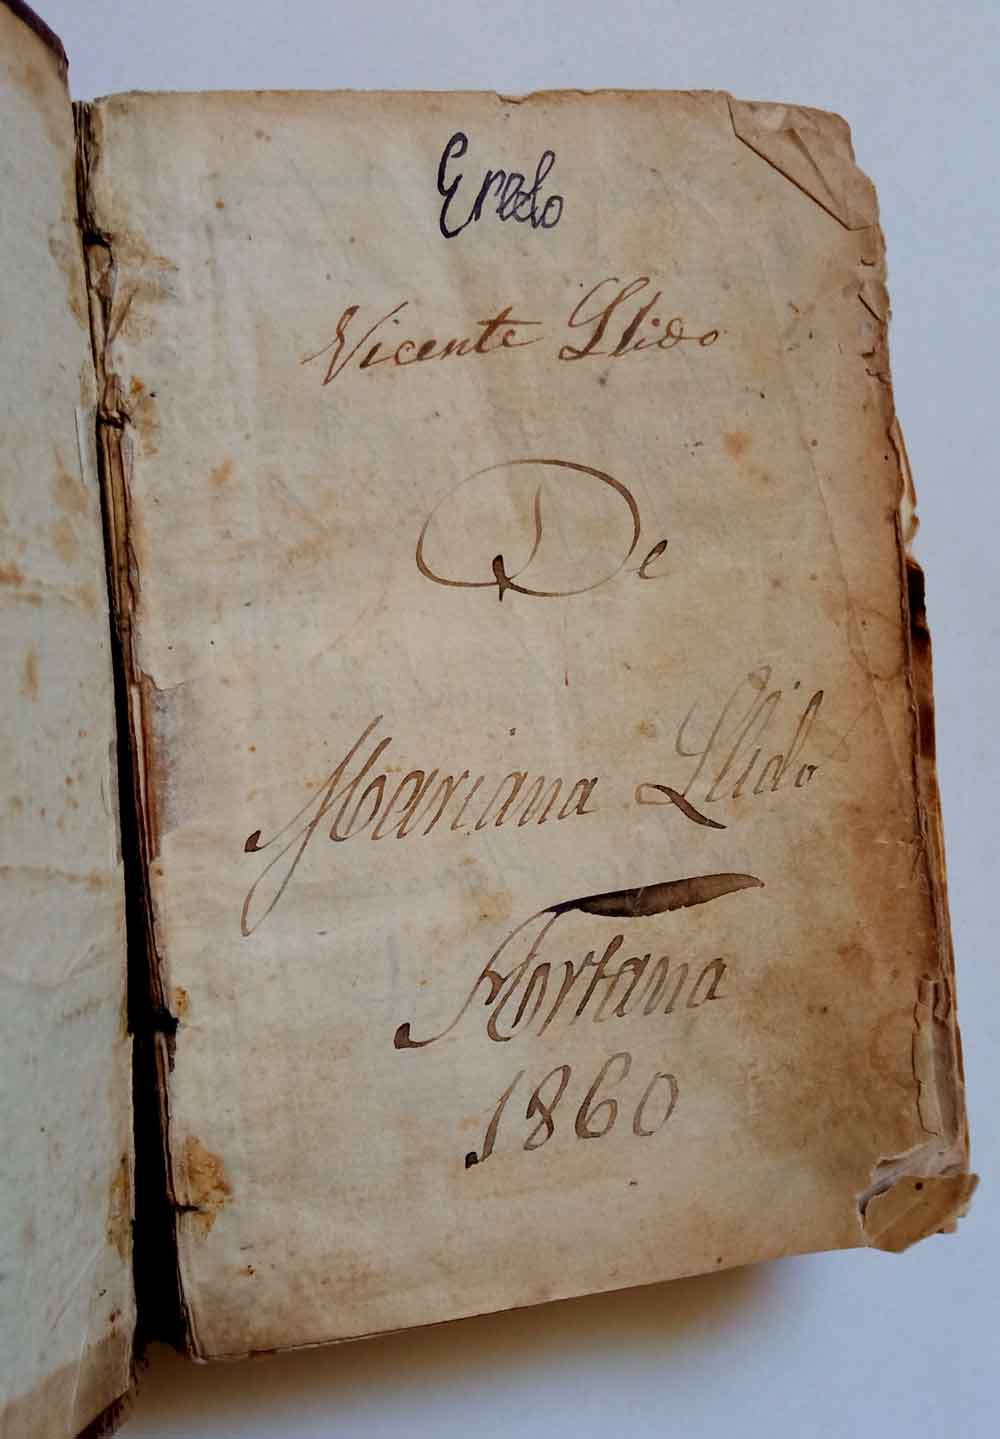 Vicente Llido
De
Mariana Llido
Fortana
1860